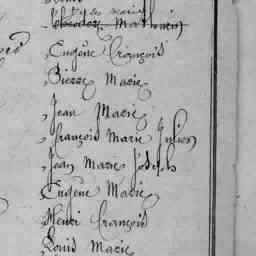 Mathurin
Eugène François
Pierre Marie
Jean Marie
François Marie Julien
Jean Marie Joseph
Eugène Marie
Henri François
Louis Marie